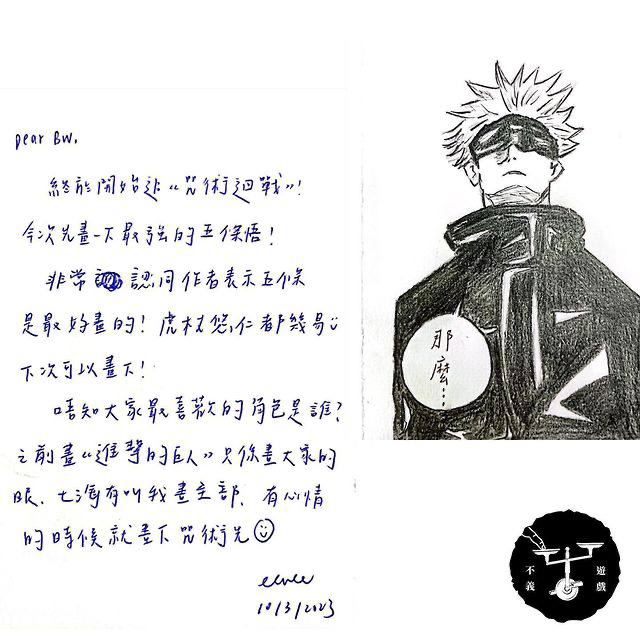 Dear BW,
終於開始追《咒術迴戰》!
今次先畫一下最強的五條悟!
非常認同作者表示五條
是最好畫的! 虎杖悠仁都幾易
下次可以畫下!
唔知大家最喜歡的角色是誰?
之前畫《進擊的巨人》只係畫大家的
眼、有叫我畫全部、有心情
的時候就畫下咒術先
10/3/2023
那
麼...
不義
遊戲